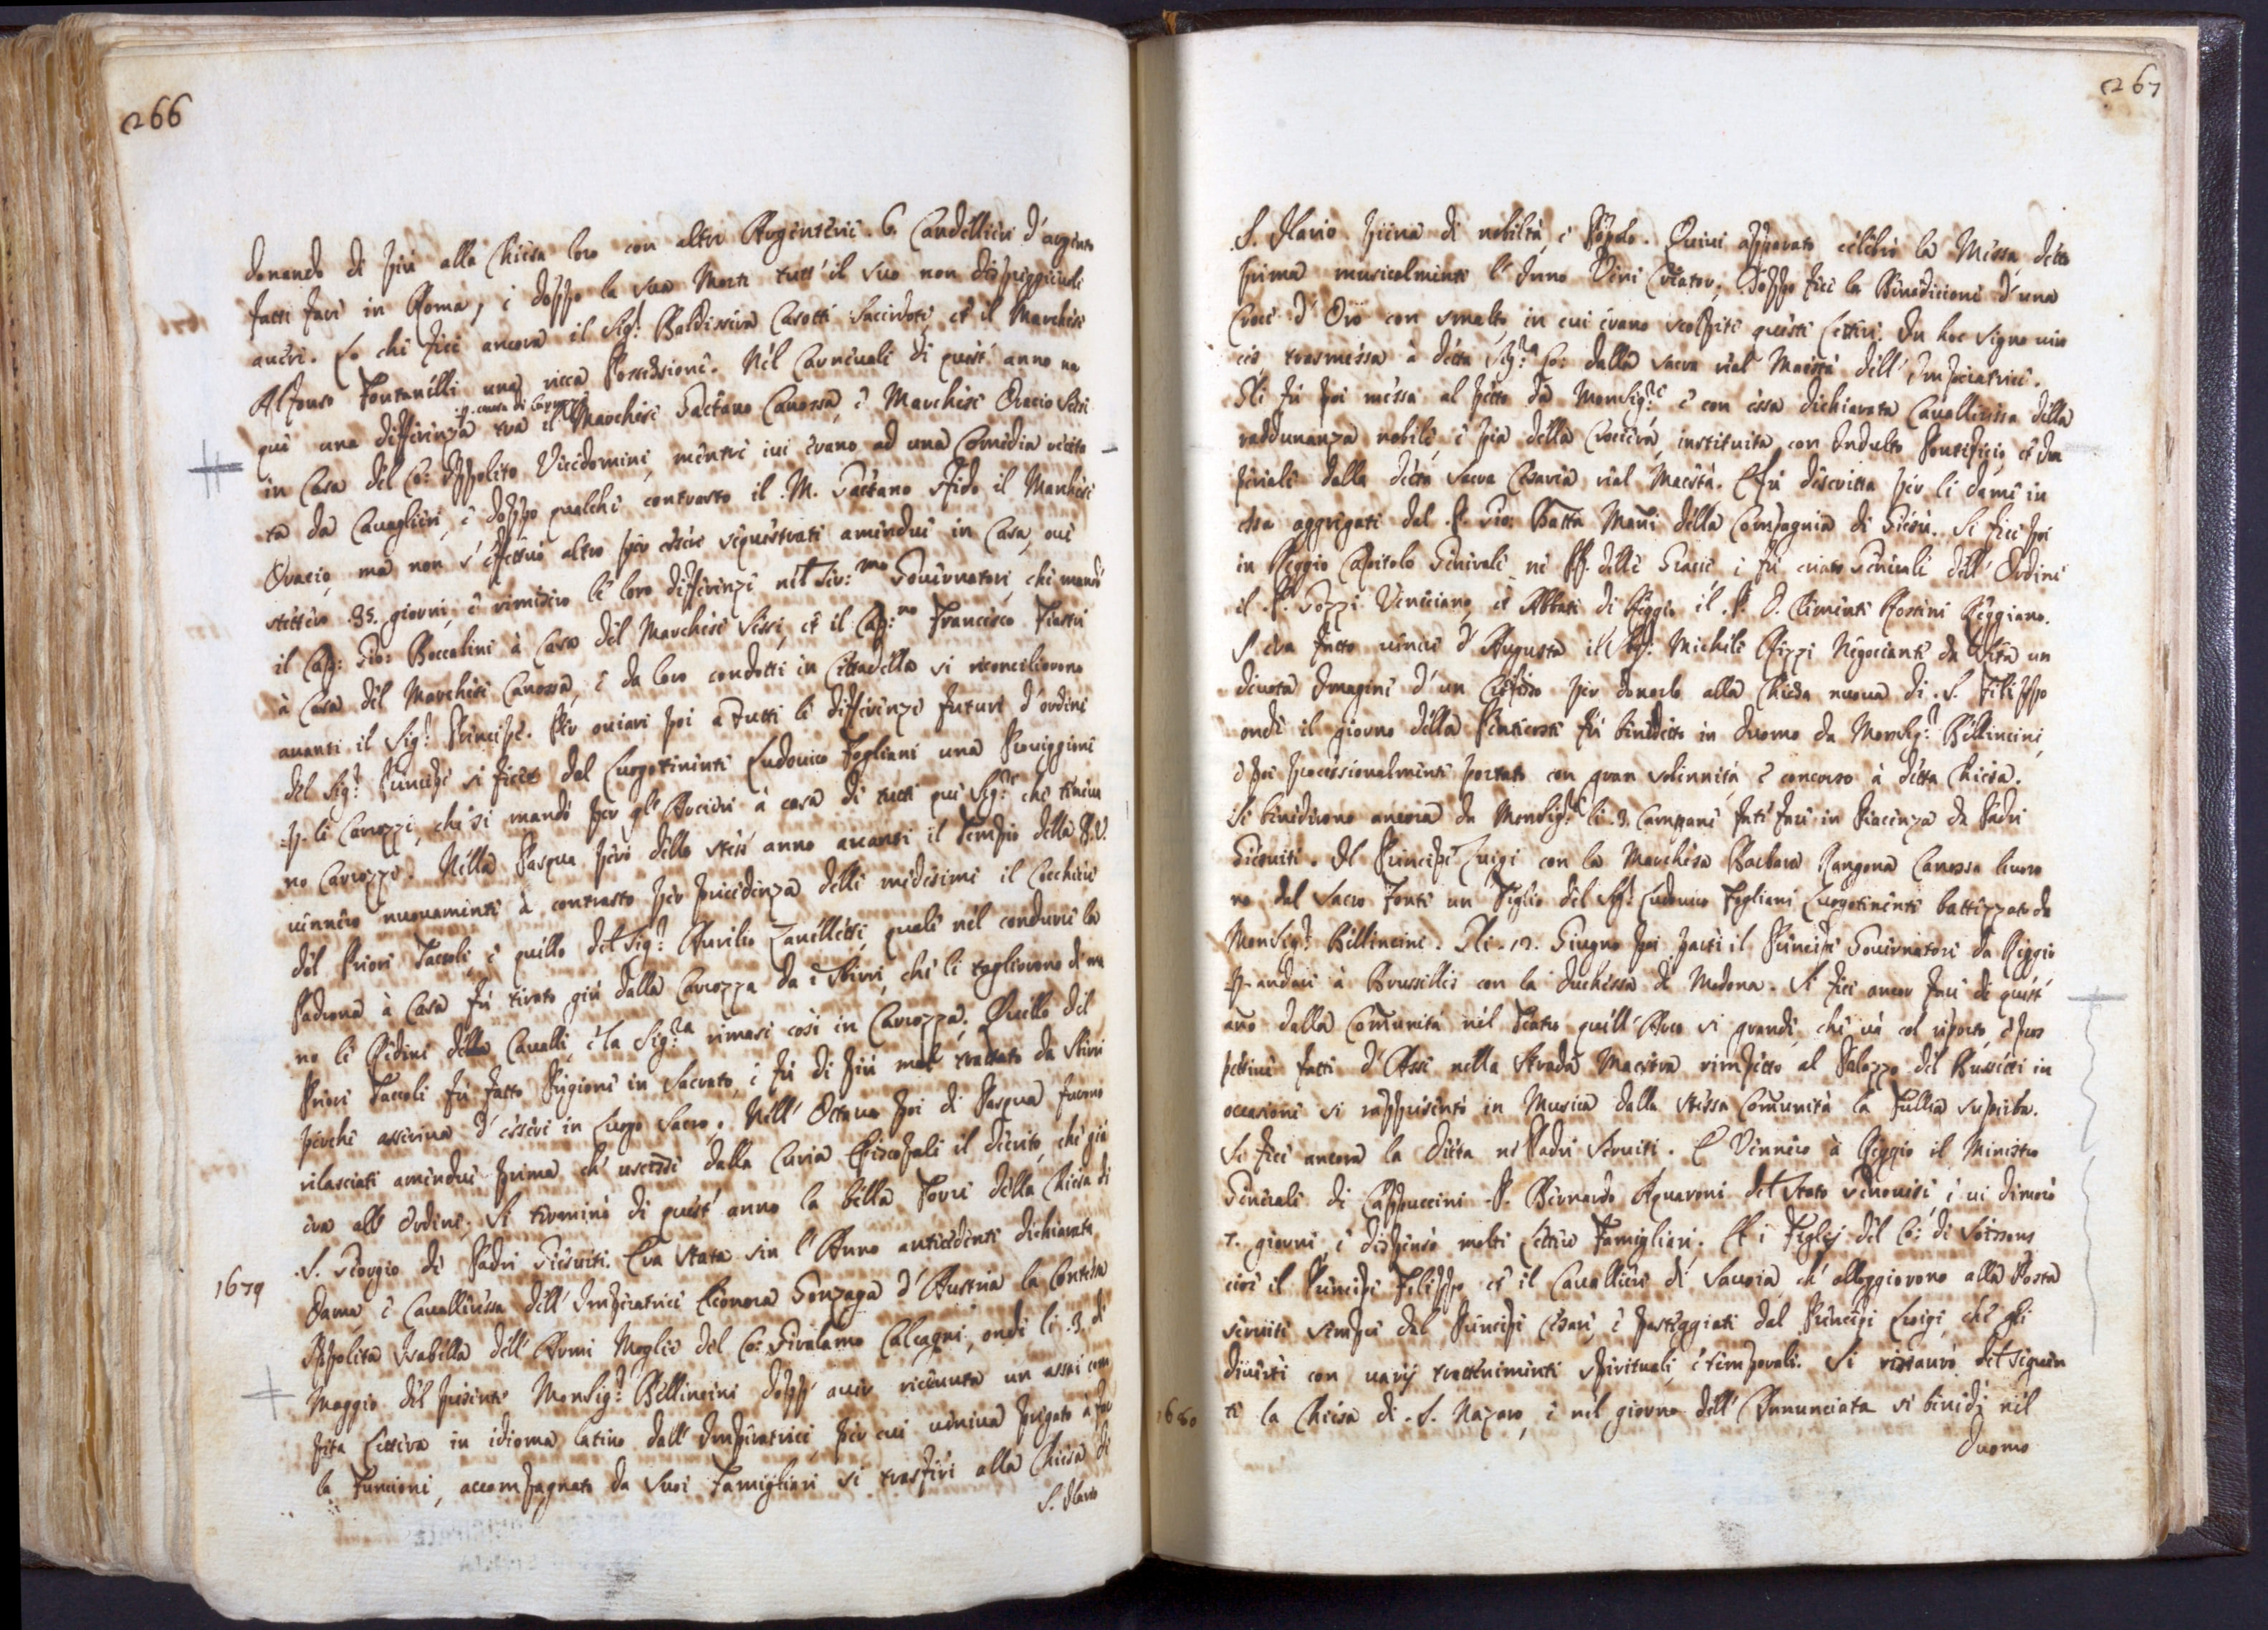 266
donando di più alla Chiesa loro con altre Argenterie. 6. Candellieri d'argento
fatti fare in Roma, e doppo la sua Morte tutt' il suo non dispreggievole
avere. Lo che fece ancora il Sig.r Baldissera Casotti Sacerdote, et il Marchese
Alfonso Fontanelli una ricca Possessione. Nel Carnevale di quest' anno na
.p. causa di Carozze
què una differenza tra il Marchese Gaetano Canossa, e Marchese Oracio Sessi
in Casa del Co: Ippolito Vicedomini, mentre ivi erano ad una Comedia recita
ta da Cavaglieri, e doppo qualche contrasto il .M. Gaetano sfidò il Marchese
Oracio, ma non s'effettuò altro per essere sequestrati amendue in Casa, ove
stettero .35. giorni, e rimisero le loro differenze nel Ser:mo Governatore, che mandò
il Cap: Gio: Boccalini à Casa del Marchese Sessi, et il Cap:no Francesco
à Casa del Marchese Canossa, e da loro condotti in Cittadella si riconciliorono
avanti il Sig.r Principe. Per oviare poi a tutti le differenze future d'ordine
del Sig.r Principe si fece dal Luogotenente Ludovico Fogliani una Proviggione
.p. le Carozze, che si mandò per gl'Arcieri à casa di tutti quei Sig.ri che tenevа
no Carozze. Nella Pasqua però dello stess' anno avanti il Tempio della B.V.
vennero nuovamente à contrasto per precedenza delli medesimi il Cocchiere
del Priore Taccoli, e quello del Sig.r Aurelio Zanelletti, quale nel condurre la
Padrona à Casa fù tirato giù dalla Carozza da i Sbirri, che li togliorono di ma
no le Redini delli Cavalli, e la Sig.ra rimase così in Carozza. Quello del
Priore Taccoli fù fatto Prigione in Sacrato, e fù di più mal trattato da Sbirri
perche asseriva d'essere in Luogo Sacro. Nell' Octava poi di Pasqua furono
rilasciati amendue prima ch' uscisse dalla Curia Episcopale il decreto, che già
era all' ordine. Si terminò di quest' anno la bella Torre della Chiesa di
.S. Giorgio de Padri Giesuiti. Era stata sin l'Anno antecedente dichiarata
1679
Dama e Cavalleressa dell' Imperatrice Eleonora Gonzaga d'Austria la Contessa
Ippolita Isabella dell' Armi Moglie del Co: Giralamo Calcagni, onde li .3. di
Maggio del presente Monsig.r Bellincini dopp' aver ricevuta un assai com
pita Lettera in idioma latino dall' Imperatrice, per cui veniva pregato à far
la Funcione, accompagnato da suoi Famigliari si trasferì alla Chiesa di
S. Ilario
267
.S. Ilario piena di nobiltà, e Popolo. Quivi apparato celebrò la Messa, detto
prima musicalmente l'Inno Veni Creator; Doppo fece la Benedicione d'una
Croce d'Oro con smalto, in cui erano scolpite queste Lettere. In hoc signo vin
ces, trasmessa à detta Sig.ra Co: dalla sacra real Maestà dell' Imperatrice.
Gli fù poi messa al petto da Monsig.re e con essa dichiarata Cavalleressa della
raddunanza nobile, e pia della Crociera, instituita con Indulto Pontificio, et Im
periale dalla detta sacra Cesarea real Maestà. E fù descritta per le dame in
essa aggregate dal .P. Gio: Batta Mani della Compagnia di Giesù. Si fece poi
in Reggio Capitolo Generale ne PP. delle Gracie, e fù creato Generale dell' Ordine
il .P. Pozzi Veneciano, et Abbate di Reggio il .P. D. Clemente Rossini Reggiano.
S'era fatto venire d'Augusta il Sig.r Michele Rizzi Negociante da Seta un
divota Imagine d'un Crocifisso per donarlo alla Chiesa nuova di .S. Filippo
onde il giorno della Penticoste fù benedetto in duomo da Monsig.r Bellincini,
e poi processionalmente portato con gran solennità, e concorso à detta Chiesa.
Si benedirono ancora da Monsig.re le .3. Campane fate fare in Piacenza da Padri
Giesuiti. Il Principe Luigi con la Marchesa Barbara Rangona Canossa levoro
no dal Sacro Fonte un Figlio del Sig.r Ludovico Fogliani Luogotenente battizzato da
Monsig.r Bellincini. Gli .12. Giugno poi partì il Principe Governatore da Reggio
.p. andare à Brusselles con la Duchessa di Modona. Si fece ancor fare di quest'
año dalla Comunità nel Teatro quell' Arco sì grande, che và col riporto, e pros
pettive fatti d'Asse nella strada Maestra rimpetto al Palazzo del Bussetti in
occasione si rappresentò in Musica dalla stessa Comunità la Tullia superba.
Si fece ancora la Dieta ne Padri Serviti. E Vennero à Reggio il Ministro
Generale di Cappuccini .P. Bernardo Aquarone del Stato Genovese, e vi dimorò
7. giorni, e dispensò molte Lettere Famigliari. Et i Figlj del Co: di Soissons
cioè il Principe Filippo, et il Cavalliere di Savoia, ch' alloggiorono alla Posta
serviti sempre dal Principe Cesare, e festeggiati dal Principe Luigi, che gli
divertì con varij trattenimenti spirituali, e temporali. Si ristaurò del seguen
1680
te la Chiesa di .S. Nazaro, e nel giorno dell' Annunciata si benedì nel
duomo